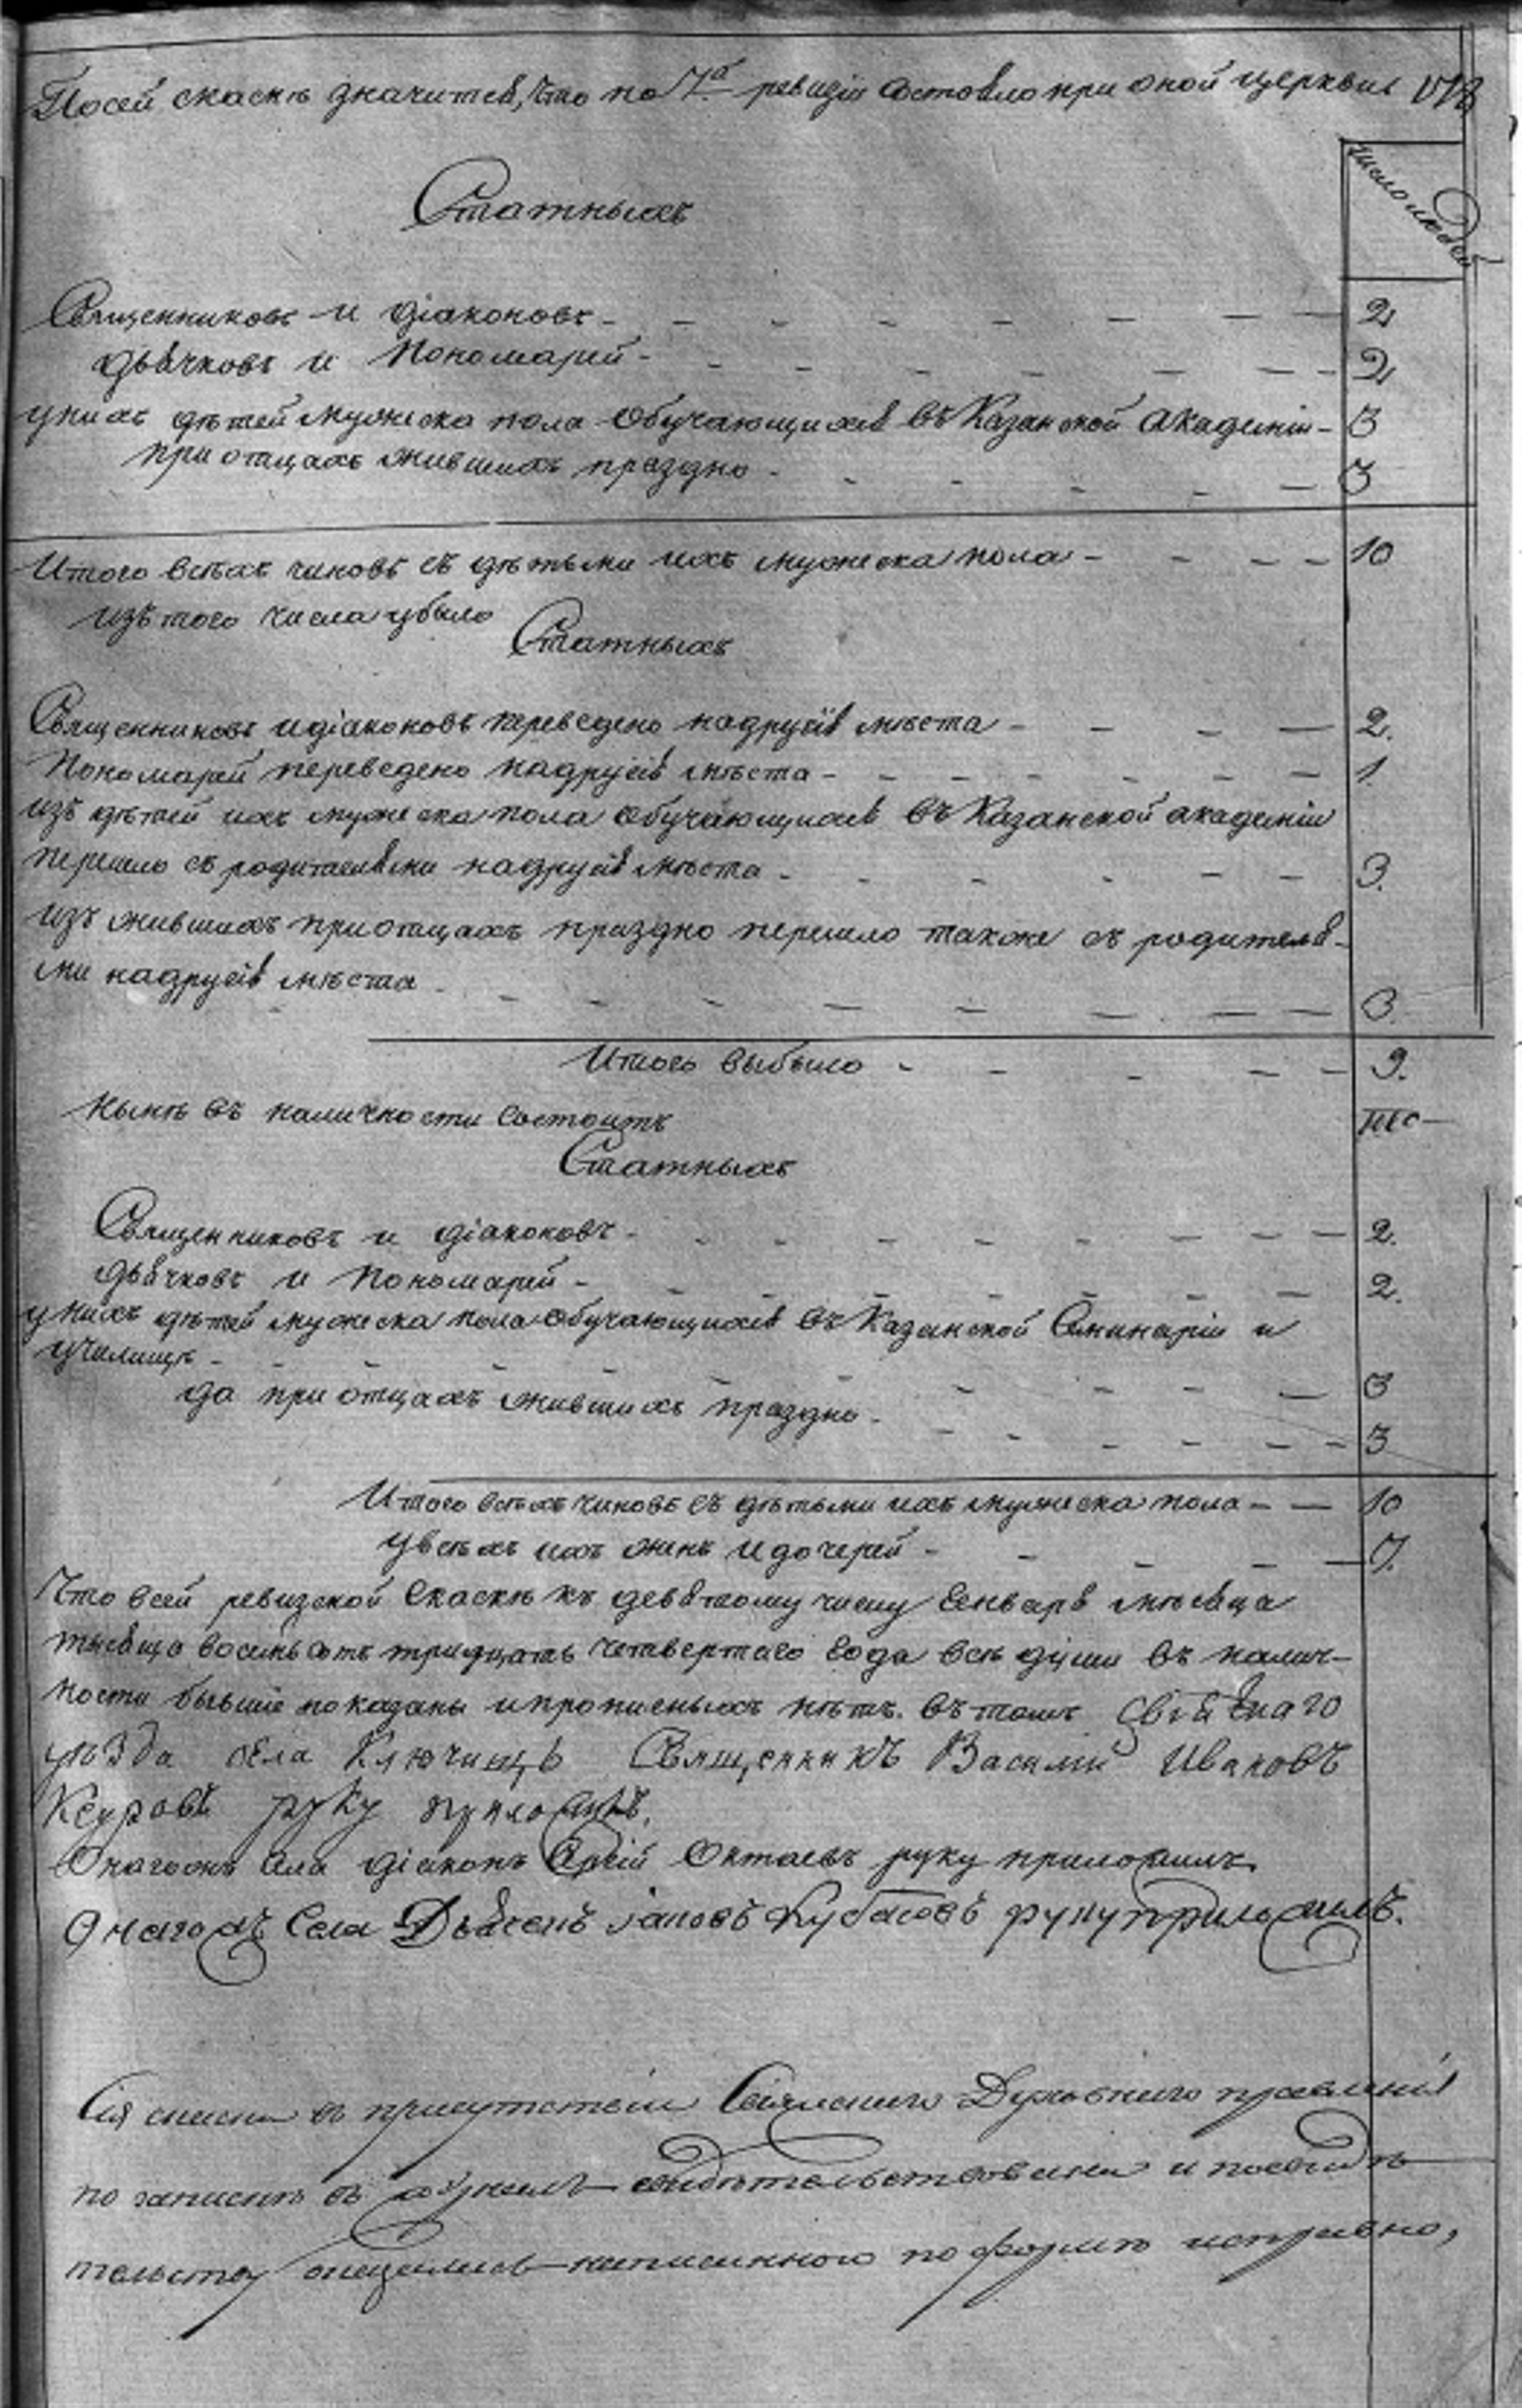 По сей скаскѣ значится, что по 7й ревизіи состояло при оной церквѣ
число людей
Статныхъ
Священниковъ и діаконовъ - 2
дьячковъ и пономарей - 2
у нихъ дѣтей мужеска пола обучающихся въ Казанской академіи - 3
при отцахъ жившихъ праздно - 3
Итого всѣхъ чиновъ съ дѣтьми ихъ мужеска пола - 10
изъ того числа убыло
Статныхъ
Священниковъ и діаконовъ переведено на другія мѣста - 2.
Пономарей переведено на другія мѣста - 1.
изъ дѣтей ихъ мужеска пола обучающихся въ Казанской академіи
перешло съ родителями на другія мѣста - 3.
изъ жившихъ при отцахъ праздно перешло также съ родителя-
ми на другія мѣста - 3.
Итого выбыло - 9.
Нынѣ въ наличности состоитъ
Статныхъ
Священниковъ и діаконовъ - 2.
дьячковъ и пономарей - 2.
у нихъ дѣтей мужеска пола обучающихся въ Казанской Семинаріи и
училищѣ - 3
да при отцахъ жившихъ праздно - 3
Итого всѣхъ чиновъ съ дѣтьми ихъ мужеска пола - 10
у всѣхъ ихъ женъ и дочерей - 7.
Что в сей ревизской скаскѣ къ девятому числу Генваря мѣсяца
тысяща восемь сотъ тридцать четвертаго года всѣ души въ налич-
ности бывшіе показаны и прописныхъ нѣтъ. въ томъ
уѣзда села Ключищь Священникъ Василій Ивановъ
руку приложилъ.
Онагожъ села діаконъ руку приложилъ.
Онагожъ села Дьячекъ руку приложилъ.
Сія въ присутствіи Духовнаго правленія
по запискѣ въ журналъ свидѣтельствована и по свидѣ-
тельству оказалась написанною по формѣ исправно,